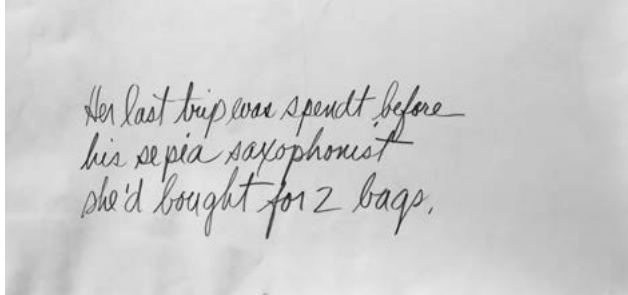 Her last trip was spendt before
his sepia saxophonist
she'd bought for 2 bags.